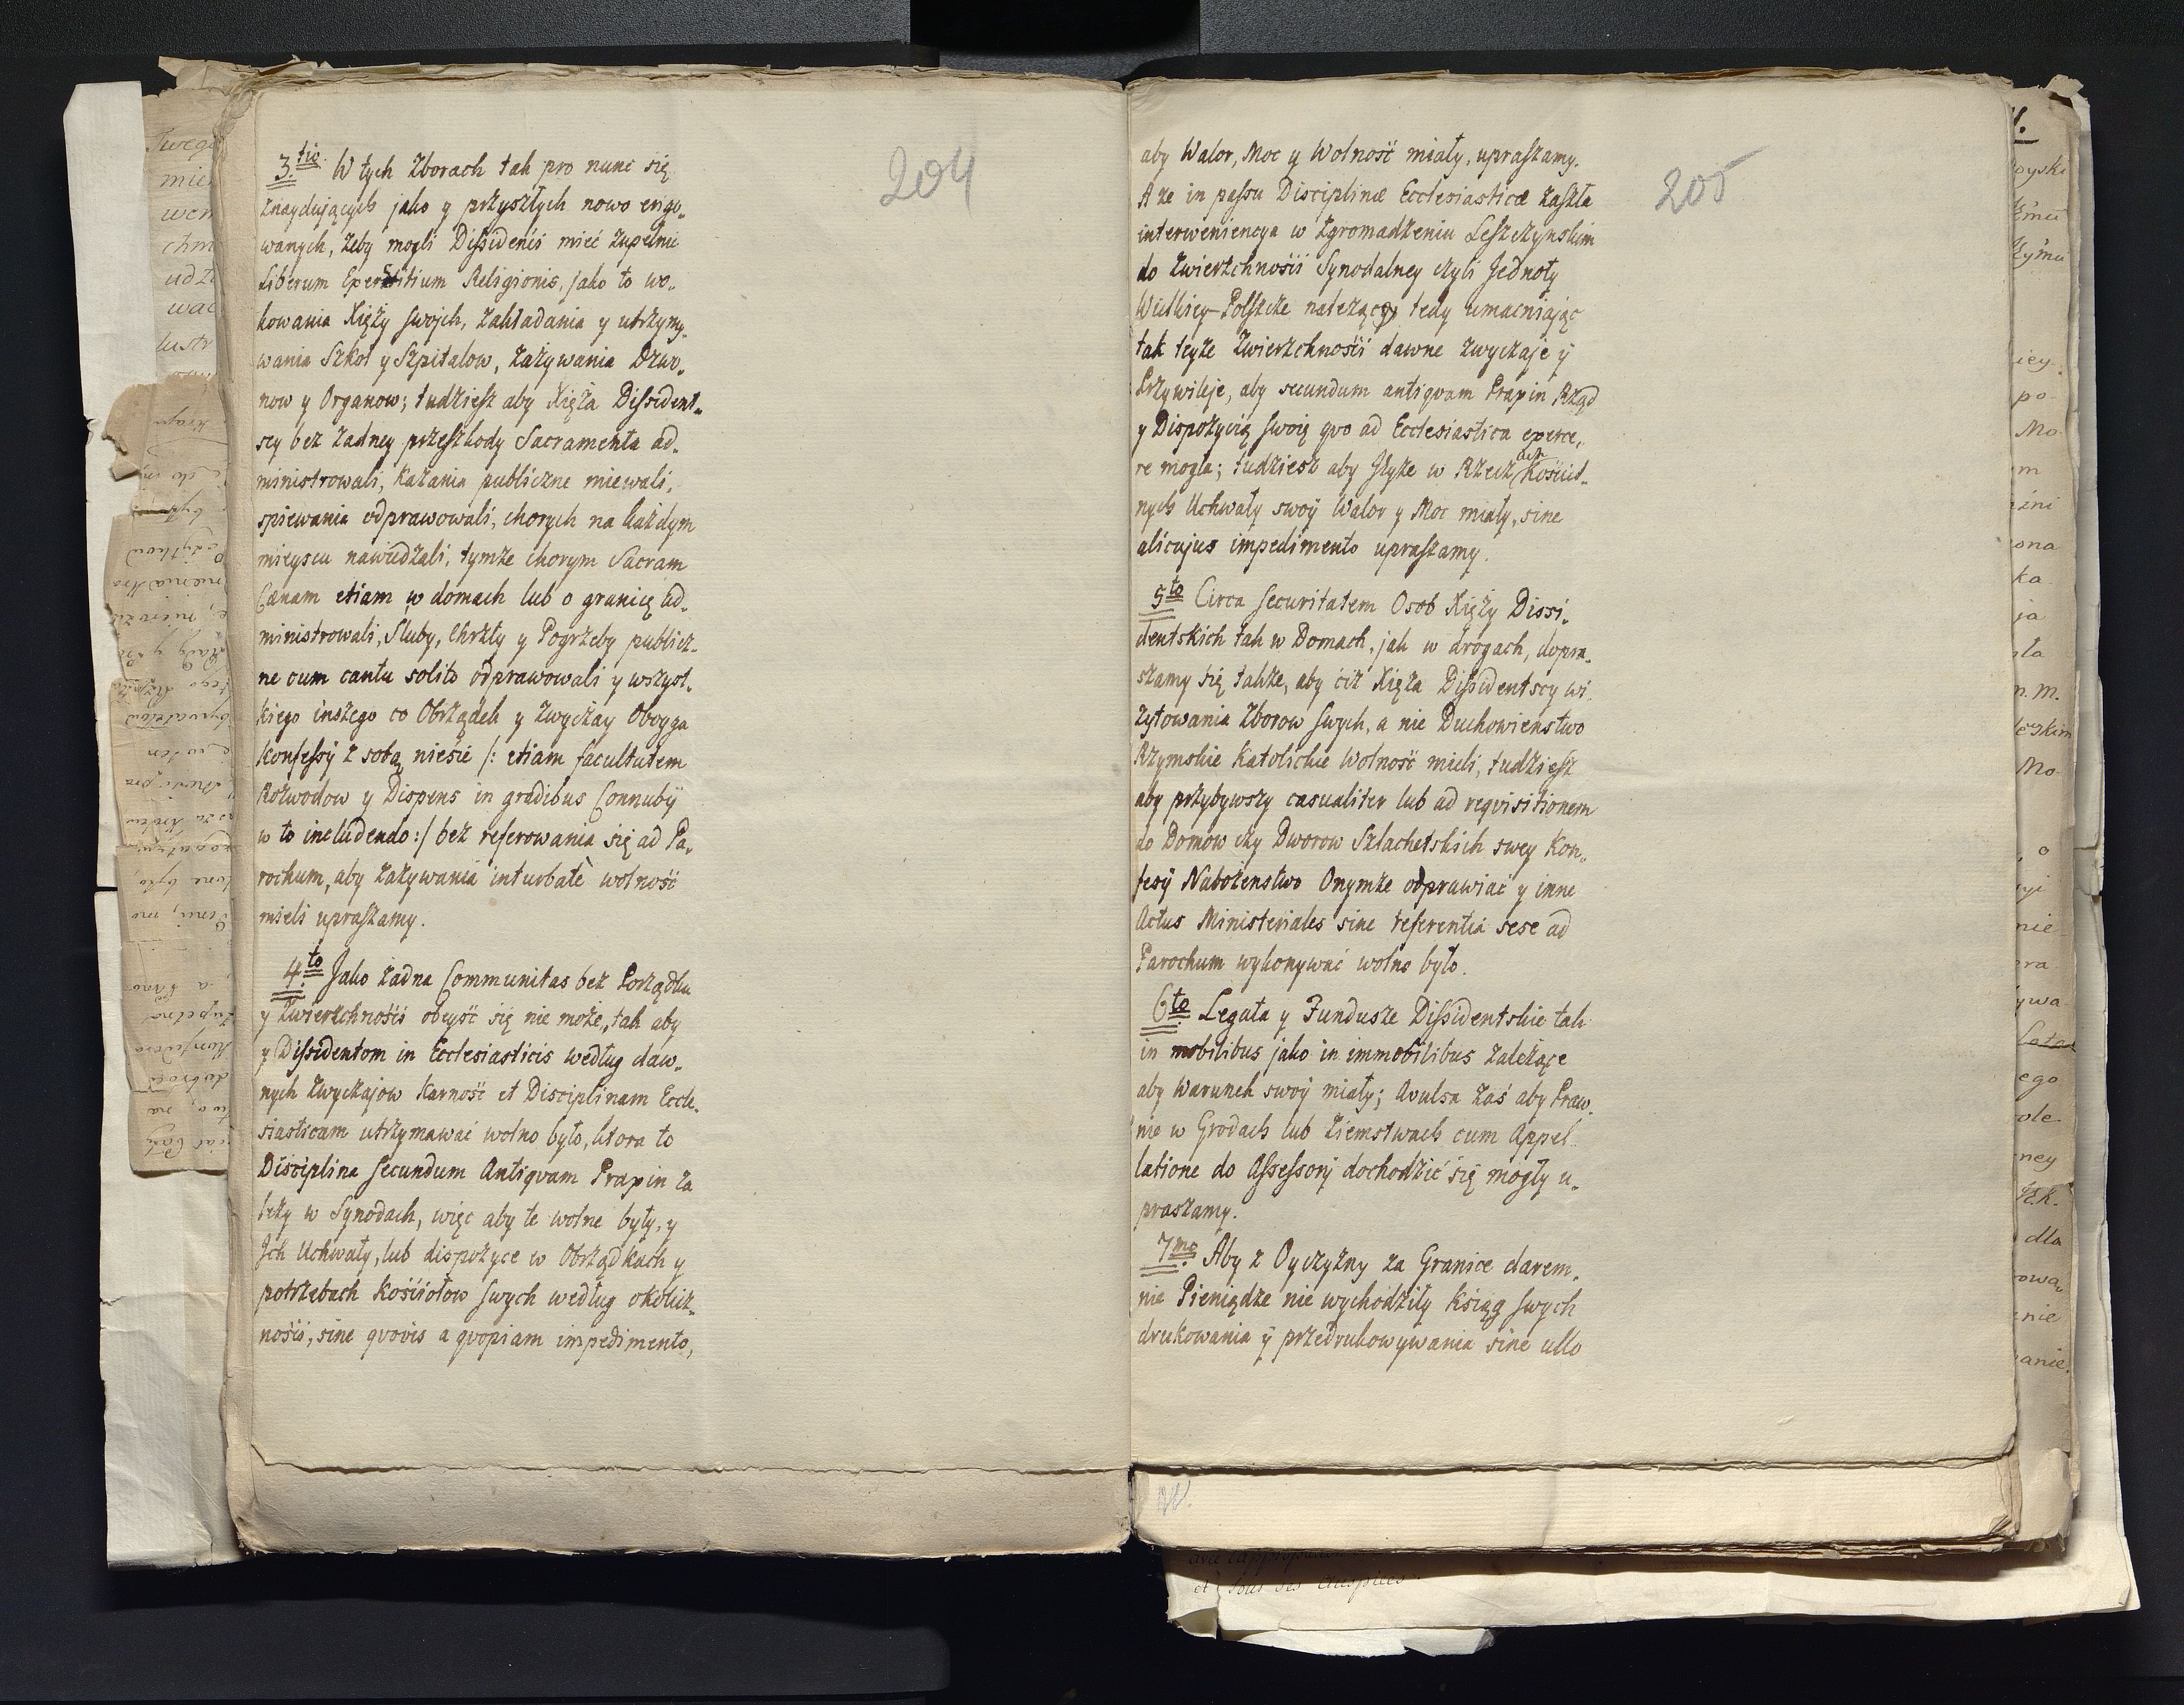 204
3.tio W tych Zborach tak pro nunc się
znayduiących jako y przyszłych nowo erigo„
wanych, żeby mogli Dissidenci mieć zupełnie
Liberum Exercitium Religionis, jako to wo„
kowania Xięży swojch, zakładania y utrzymy„
wania Szkoł y Szpitalow, zażywania Dzwo„
now y Organow; tudziesz aby Xięża Dissident„
scy bez żadney przeszkody Sacramenta ad„
ministrowali, kazania publiczne miewali,
spiewania odprawowali, chorych na każdym
mieyscu nawiedzali, tymże chorym Sacram
Cænam etiam w domach lub o granicę ad„
ministrowali, Sluby, Chrzty y Pogrzeby publicz„
ne cum cantu solito odprawowali y wszyst„
kiego inszego co Obrządek y zwyczay Oboyga
Konfessÿ z sobą niesie /: etiam facultatem
Rozwodow y Dispens in gradibus Connubÿ
w to includendo :/ bez referowania się ad Pa„
rochum, aby zażywania inturbatè wolność
mieli upraszamy.
4.to Jako żadna Communitas bez Porządku
y Zwierzchności obeyść się nie może, tak aby
y Dissidentom in Ecclesiasticis według daw„
nych zwyczajow Karność et Disciplinam Eccle„
siasticam utrzymawać wolno było, ktora to
Disciplina secundum Antiqvam Praxin za
leży w Synodach, więc aby te wolne były, y
Jch Uchwały, lub dispozyce w Obrządkach y
potrzebach Kościołow swych według okolicz„
ności, sine qvovis a qvopiam impedimento,
205
aby Walor, Moc y Wolność miały, upraszamy.
A że in passu Disciplinæ Ecclesiasticæ zaszła
interweniencya w zgromadzeniu Leszczynskim
do Zwierzchności Synodalney czyli Jednoty
Wielkiey-Polszcze należący tedy umacniając
tak teyże Zwierzchności dawne zwyczaje ÿ
Przywileje, aby secundum antiqvam Praxin Rząd
y Dispozycię swoię qvo ad Ecclesiastica exerce„
re mogla; tudziesz aby Jeyże w Rzeczach Kościel„
nych Uchwały swoÿ Walor y Moc miały, sine
alicujus impedimento upraszamy.
5to Circa securitatem Osob Xięży Dissi„
dentskich tak w Domach, jak w drogach, dopra„
szamy się także, aby ciż Xięża Dissidentscy wi„
zytowania Zborow swych, a nie Duchowienstwo
Rzymskie Katolickie Wolność mieli, tudziesz
aby przybywszy casualiter lub ad reqvisitionem
do Domow czy Dworow Szlachetskich swey Kon„
fesÿ Nabożenstwo Onymże odprawiać y inne
Actus Ministeriales sine referentia sese ad
Parochum wykonywać wolno było.
6to Legata y Fundusze Dissidentskie tak
in mobilibus jako in immobilibus zależące
aby Warunek swoÿ miały; Avulsa zaś aby Praw„
nie w Grodach lub Ziemstwach cum Appel„
latione do Assessorÿ dochodzić się mogły u„
praszamy.
7mo Aby z Oyczyzny za Granice darem„
nie Pieniądze nie wychodziły ksiąg swych
drukowania ÿ przedrukowywania sine ullo